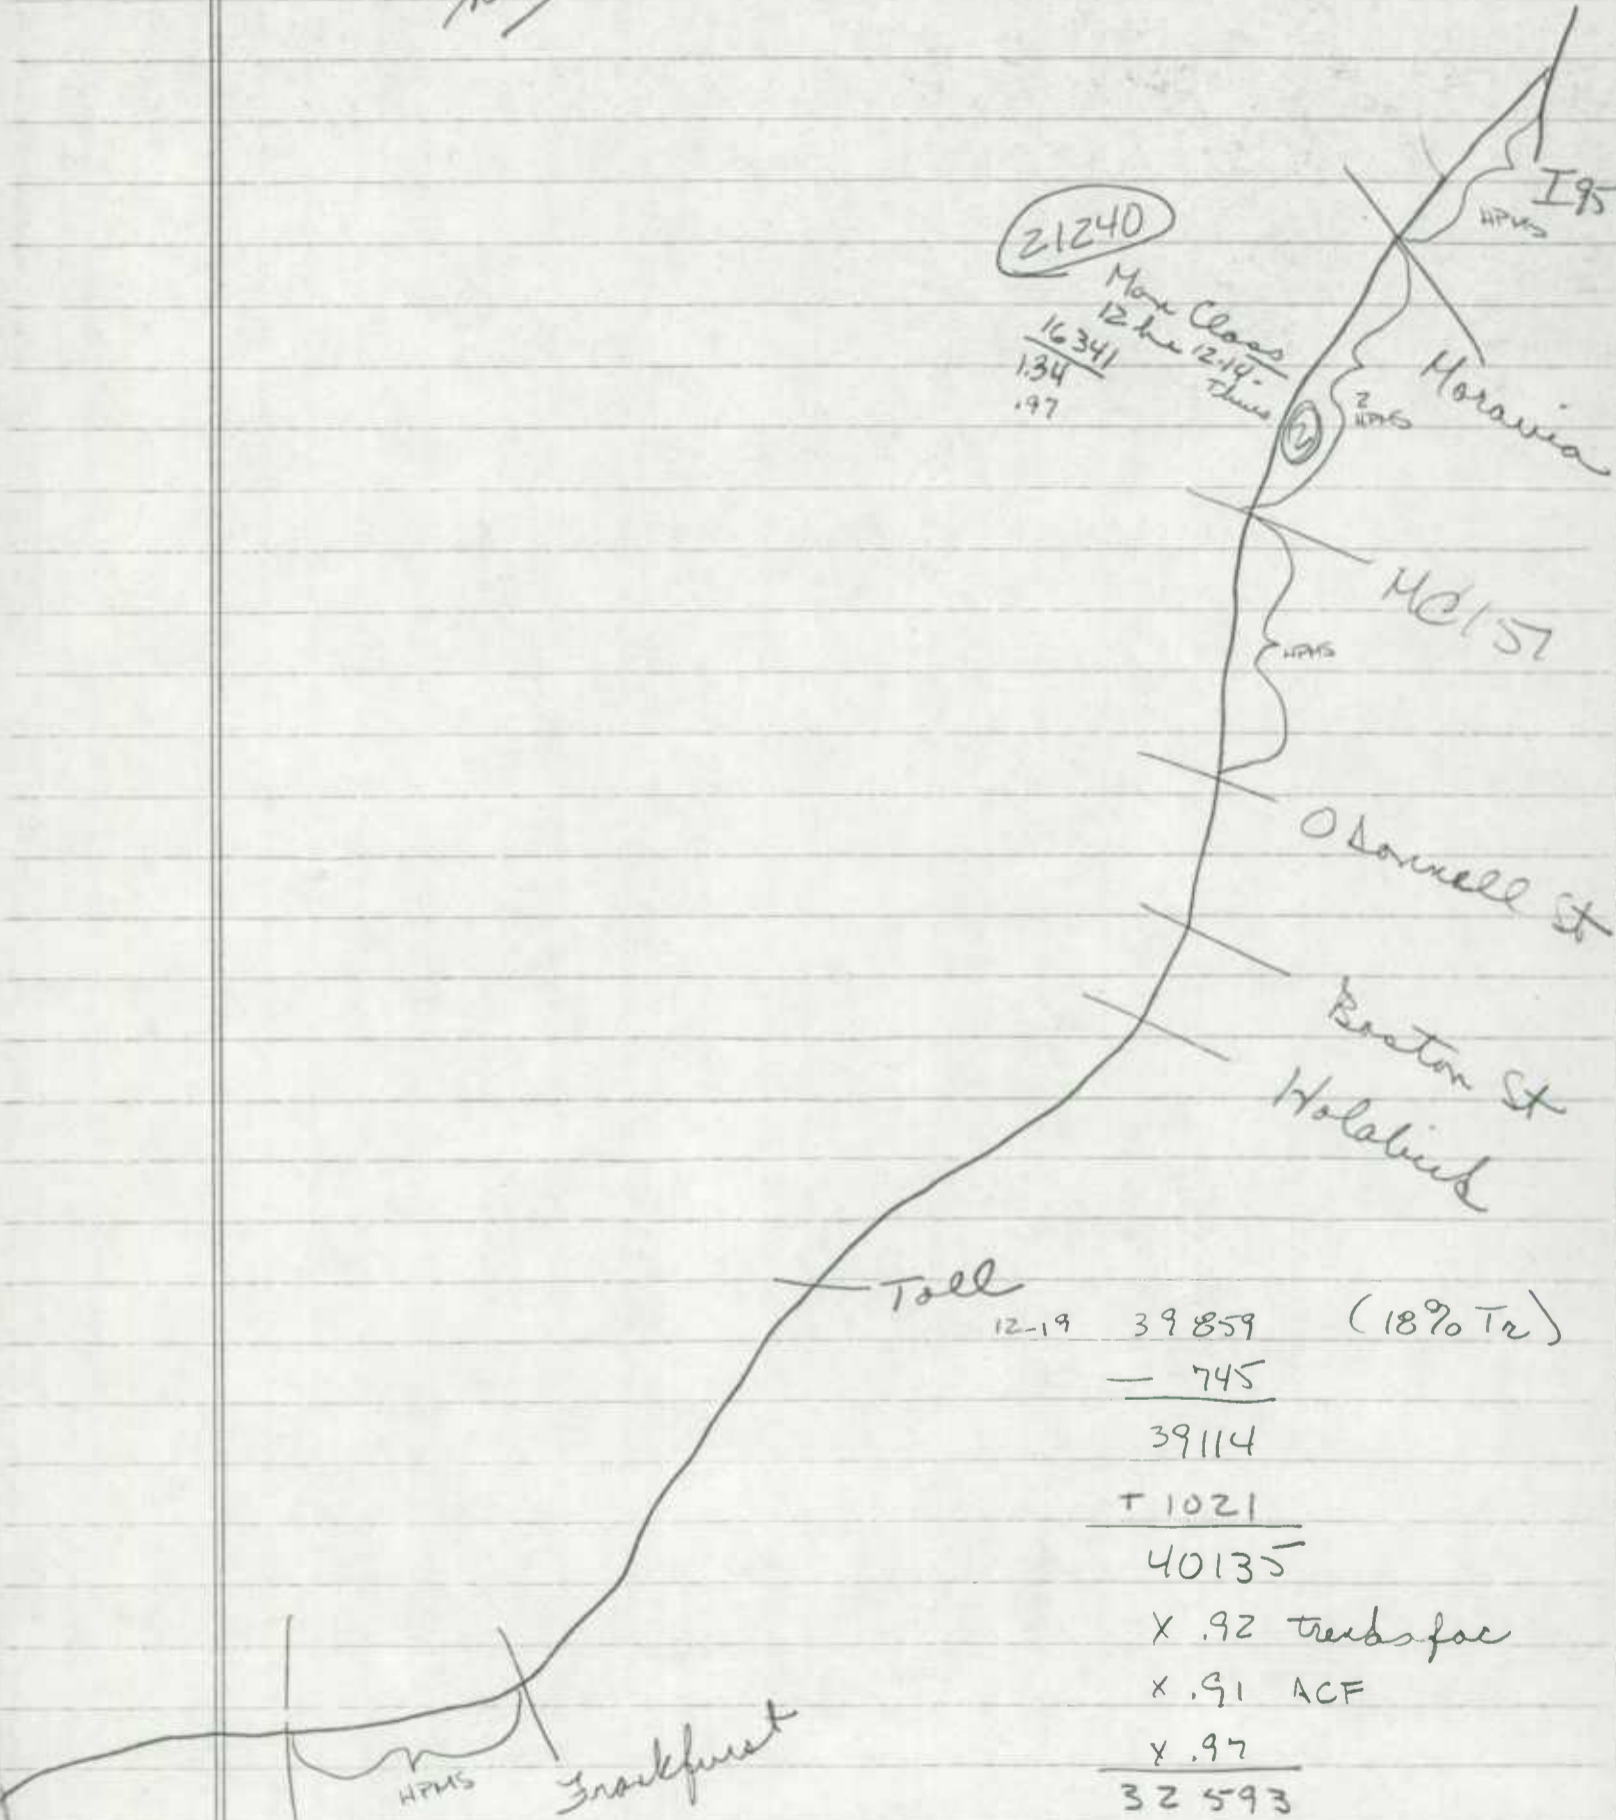 I95
HPMS
21240
Man Class
12 hr 12-14-
Thurs
16341
1.34
.97
2
2
HPMS
Moravia
MC157
HPMS
O Donnell St
Boston St
Holabird
Toll
12-19 39859 (18% Tr)
— 745
39114
+ 1021
40135
X .92 trendsfac
x .91 ACF
x .97
32593
HPMS
Frankfurst